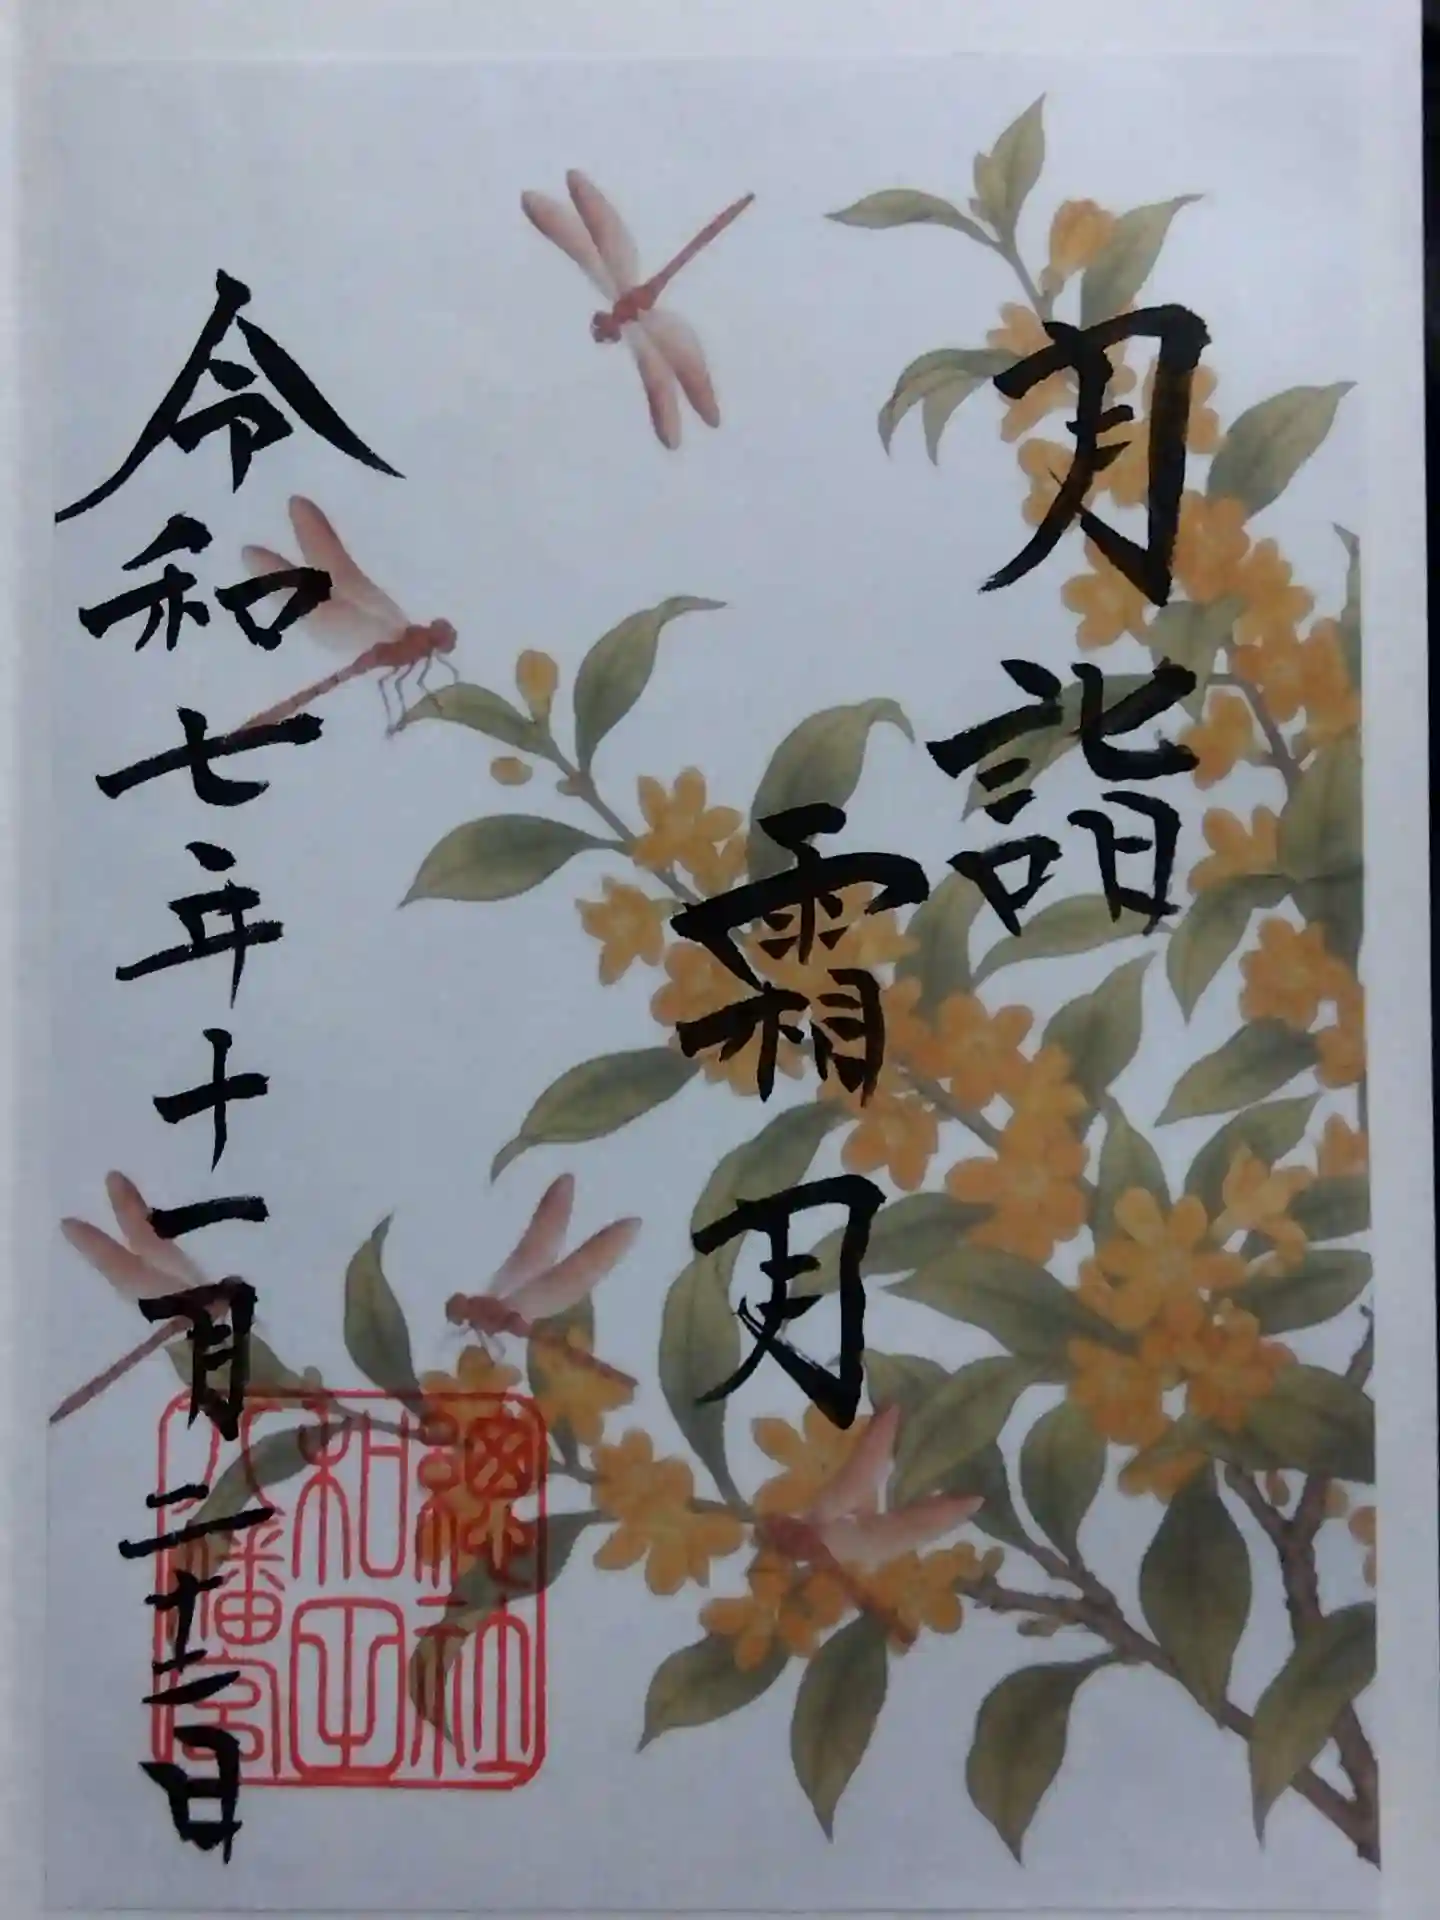 月詣
霜月
令和七年十一月二十二日
總社
和田
八幡宮